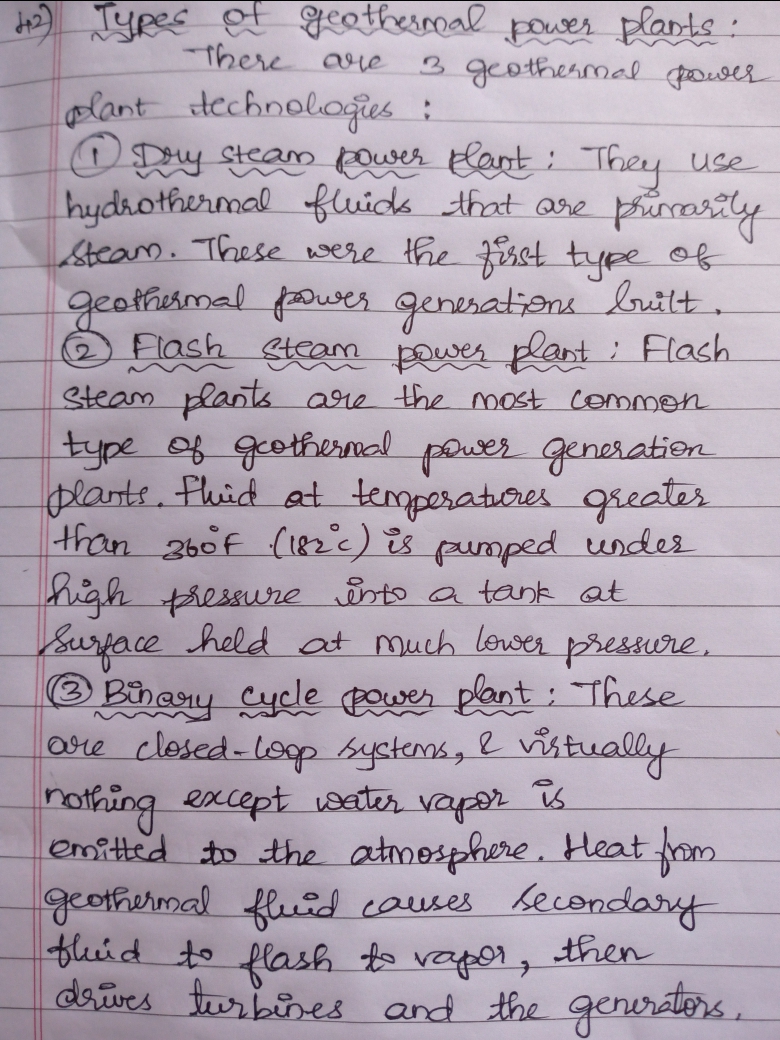 42) Types of geothermal power plants :
There are 3 geothermal power
plant technologies :
① Dry steam power plant : They use
hydrothermal fluids that are primarily
steam. These were the first type of
geothermal power generations built.
② Flash steam power plant : Flash
steam plants are the most common
type of geothermal power generation
plants. Fluid at temperatures greater
than 360°F (182°C) is pumped under
high pressure into a tank at
surface held at much lower pressure.
③ Binary cycle power plant : These
are closed-loop systems, & virtually
nothing except water vapor is
emitted to the atmosphere. Heat from
geothermal fluid causes secondary
fluid to flash to vapor, then
drives turbines and the generators.